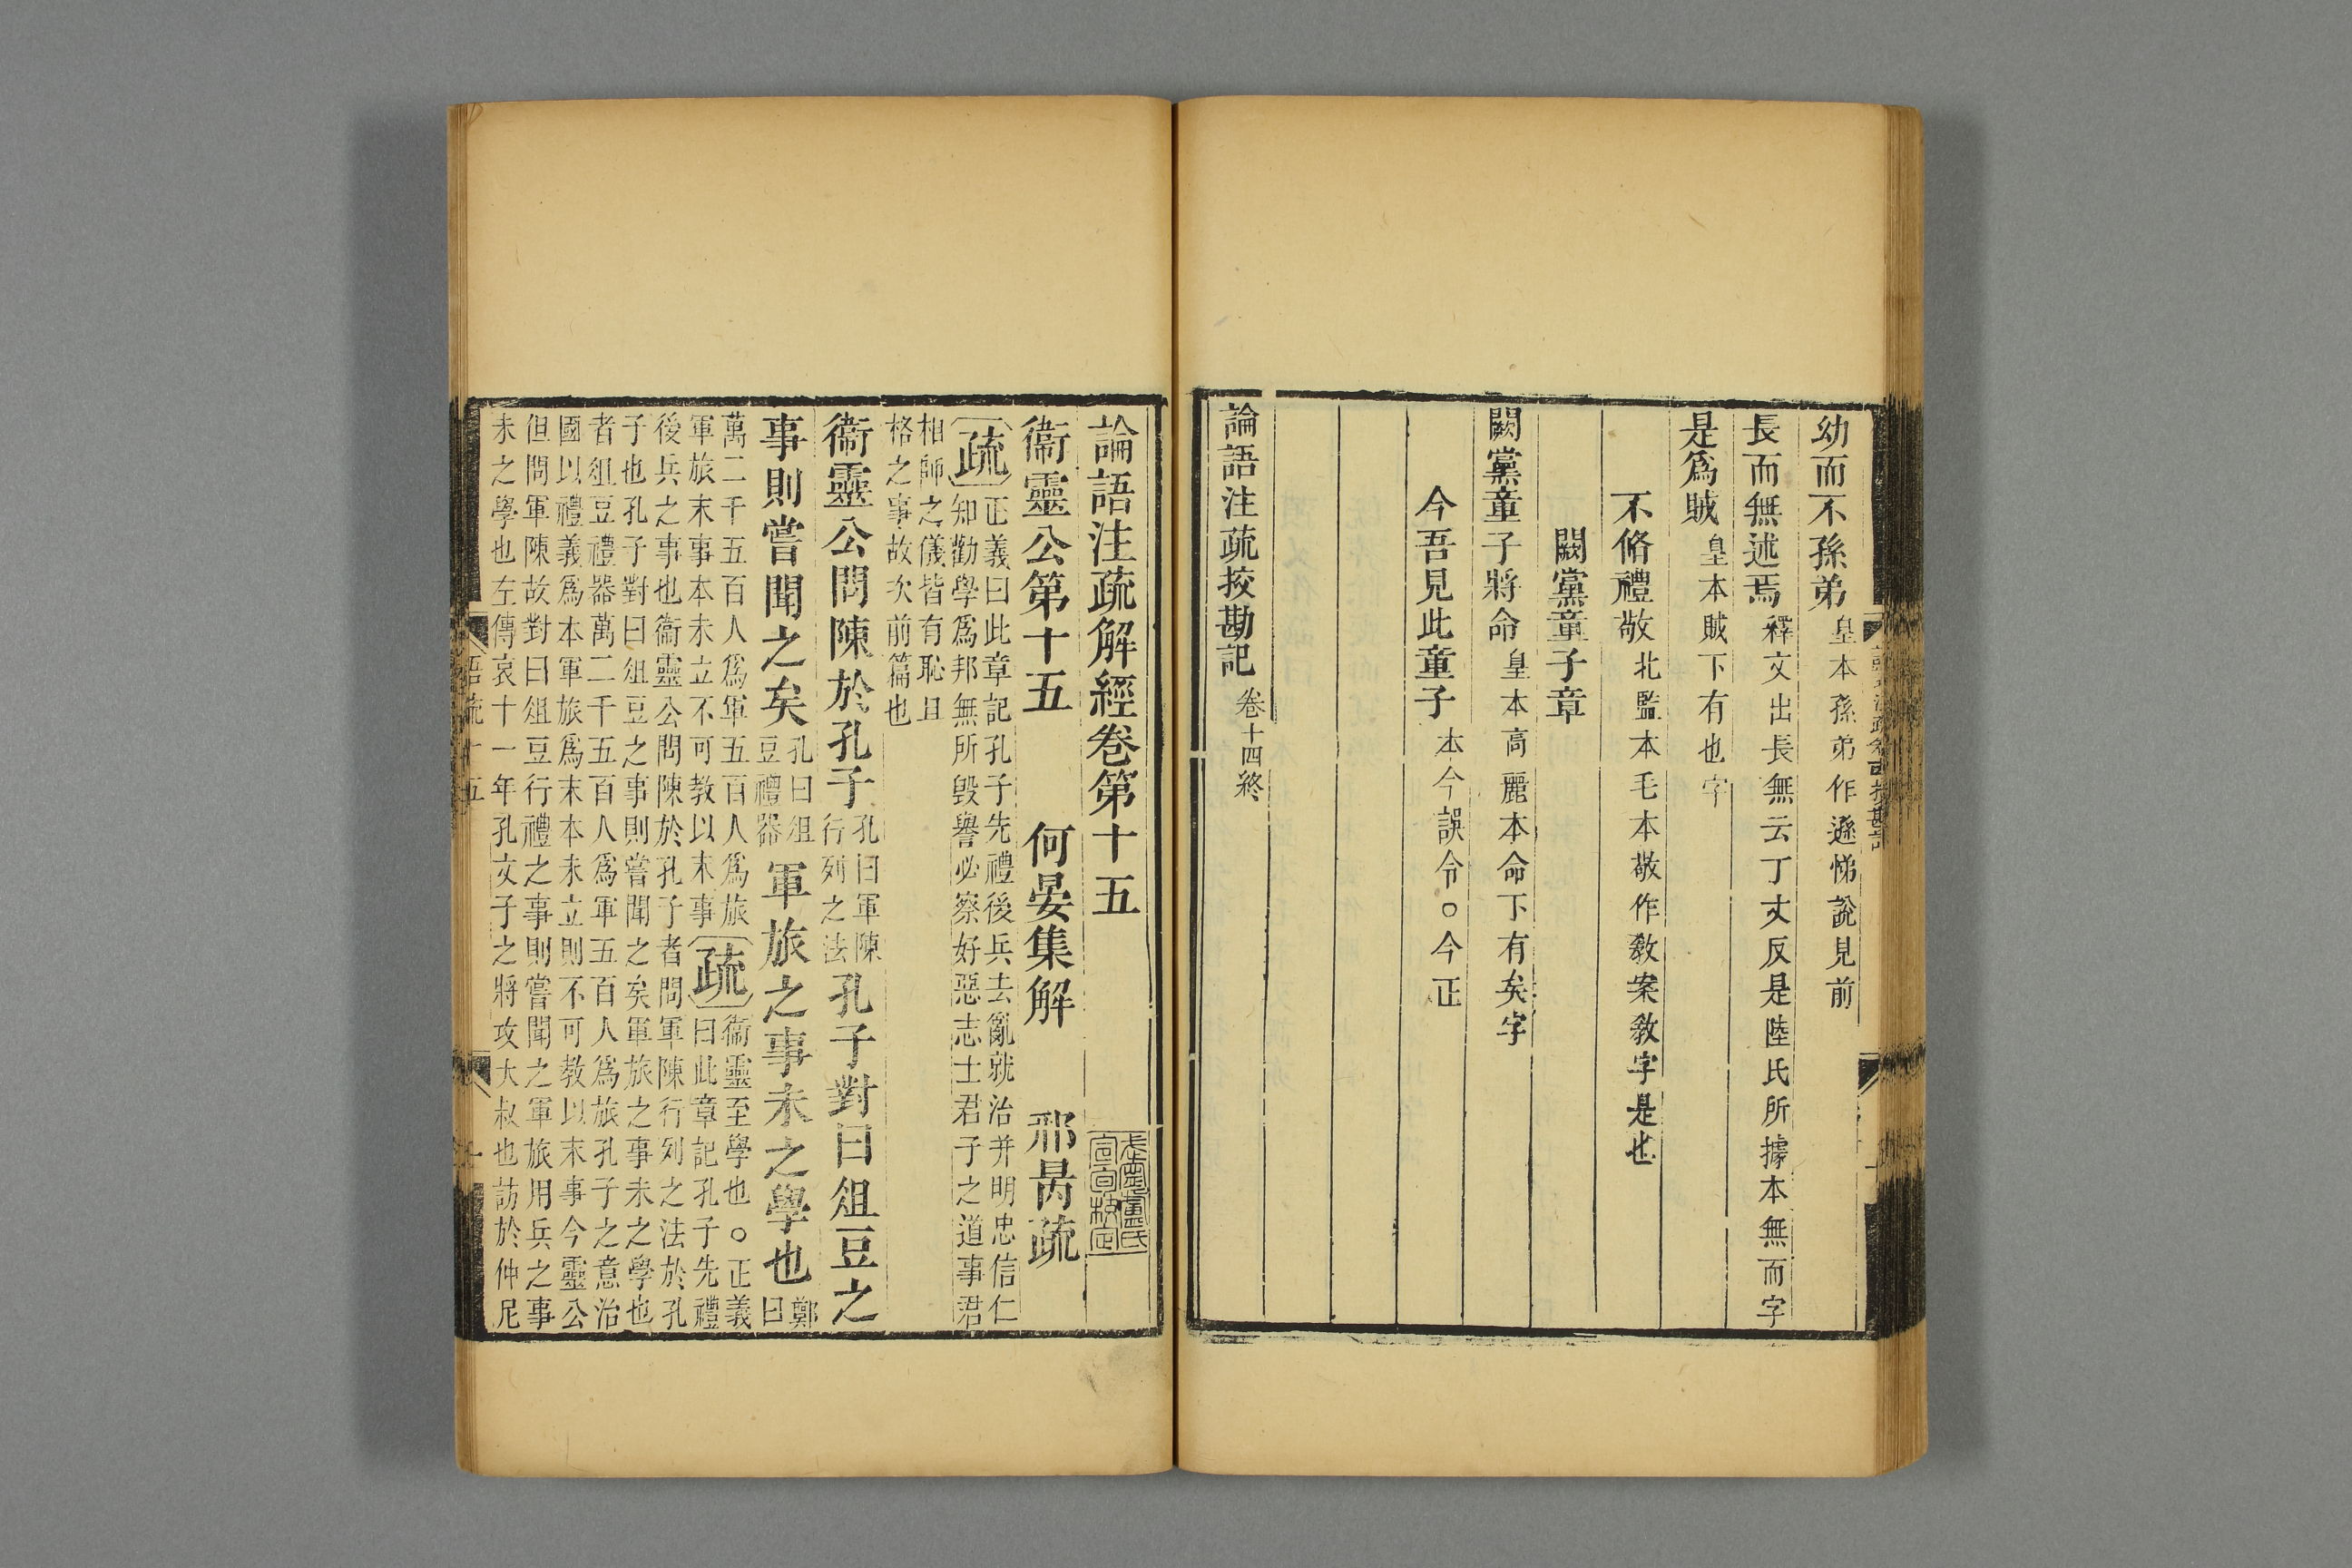 幼而不孫弟皇本孫弟作遜悌說見前
長而無述焉釋文出長無云丁丈反是陸氏所據本無而字
是爲賊皇本賊下有也字
不脩禮敬北監本毛本敬作敎案敎字是也
闕黨童子章
闕黨童子將命皇本高麗本命下有矣字
今吾見此童子本今誤令○今正
論語注疏挍勘記卷十四終
論語注疏解經卷第十五
衞靈公第十五 何晏集解 邢昺疏
疏正義曰此章記孔子先禮後兵去亂就治并明忠信仁
知勸學爲邦無所毀譽必察好惡志士君子之道事君
相師之儀皆有恥且
格之事故次前篇也
衞靈公問陳於孔子孔曰軍陳
行列之法孔子對曰俎豆之
事則嘗聞之矣孔曰俎
豆禮器軍旅之事未之學也鄭
曰
萬二千五百人爲軍五百人爲旅
軍旅末事本未立不可教以末事疏衞靈至學也○正義
曰此章記孔子先禮
後兵之事也衞靈公問陳於孔子者問軍陳行列之法於孔
子也孔子對曰俎豆之事則嘗聞之矣軍旅之事未之學也
者俎豆禮器萬二千五百人爲軍五百人爲旅孔子之意治
國以禮義爲本軍旅爲末本未立則不可教以末事今靈公
但問軍陳故對曰俎豆行禮之事則嘗聞之軍旅用兵之事
未之學也左傳哀十一年孔文子之將攻大叔也訪於仲尼